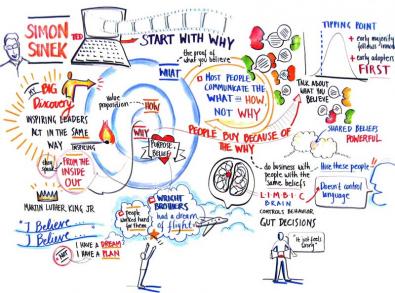 SIMON
SINEK
TED
START WITH WHY
the proof of
what you believe
WHAT
value
proposition
HOW
WHY
PURPOSE
BELIEFS
MY
BIG
Discovery
INSPIRING LEADERS
ACT IN THE SAME
WAY
they
FROM THE
INSIDE
OUT
MARTIN LUTHER KING, JR
"I Believe
I Believe
I HAVE A DREAM
NOT
I HAVE A PLAN
people
worked hard
for them
WRIGHT
BROTHERS
had a dream
of flight
MOST PEOPLE
COMMUNICATE THE
WHAT HOW,
NOT WHY
PEOPLE BUY BECAUSE OF
THE WHY
TALK ABOUT
WHAT YOU
BELIEVE
TIPPING POINT
early majority
early adopters
FIRST
SHARED BELIEFS
POWERFUL
do business with
people with the
same beliefs
Hire these people
LIMBIC
BRAIN
CONTROLS BEHAVIOR
Doesn't control
language
GUT DECISIONS
"it just feels